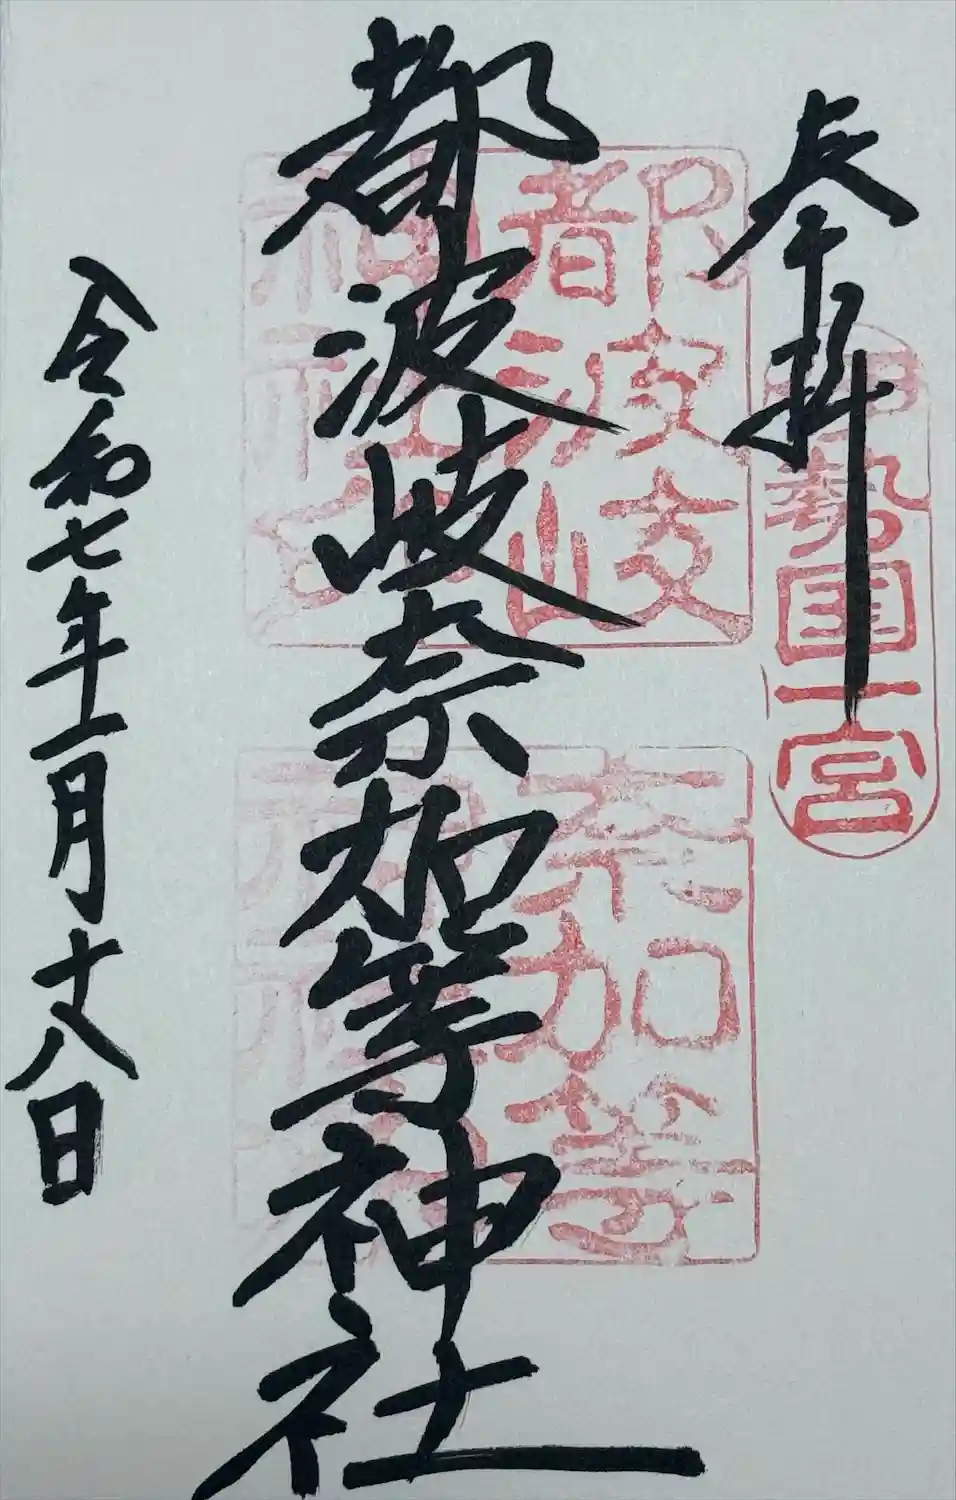 奉拝
伊勢国一宮
都波岐奈加等神社
都波岐
神社
奈加等
神社
令和七年一月廿八日